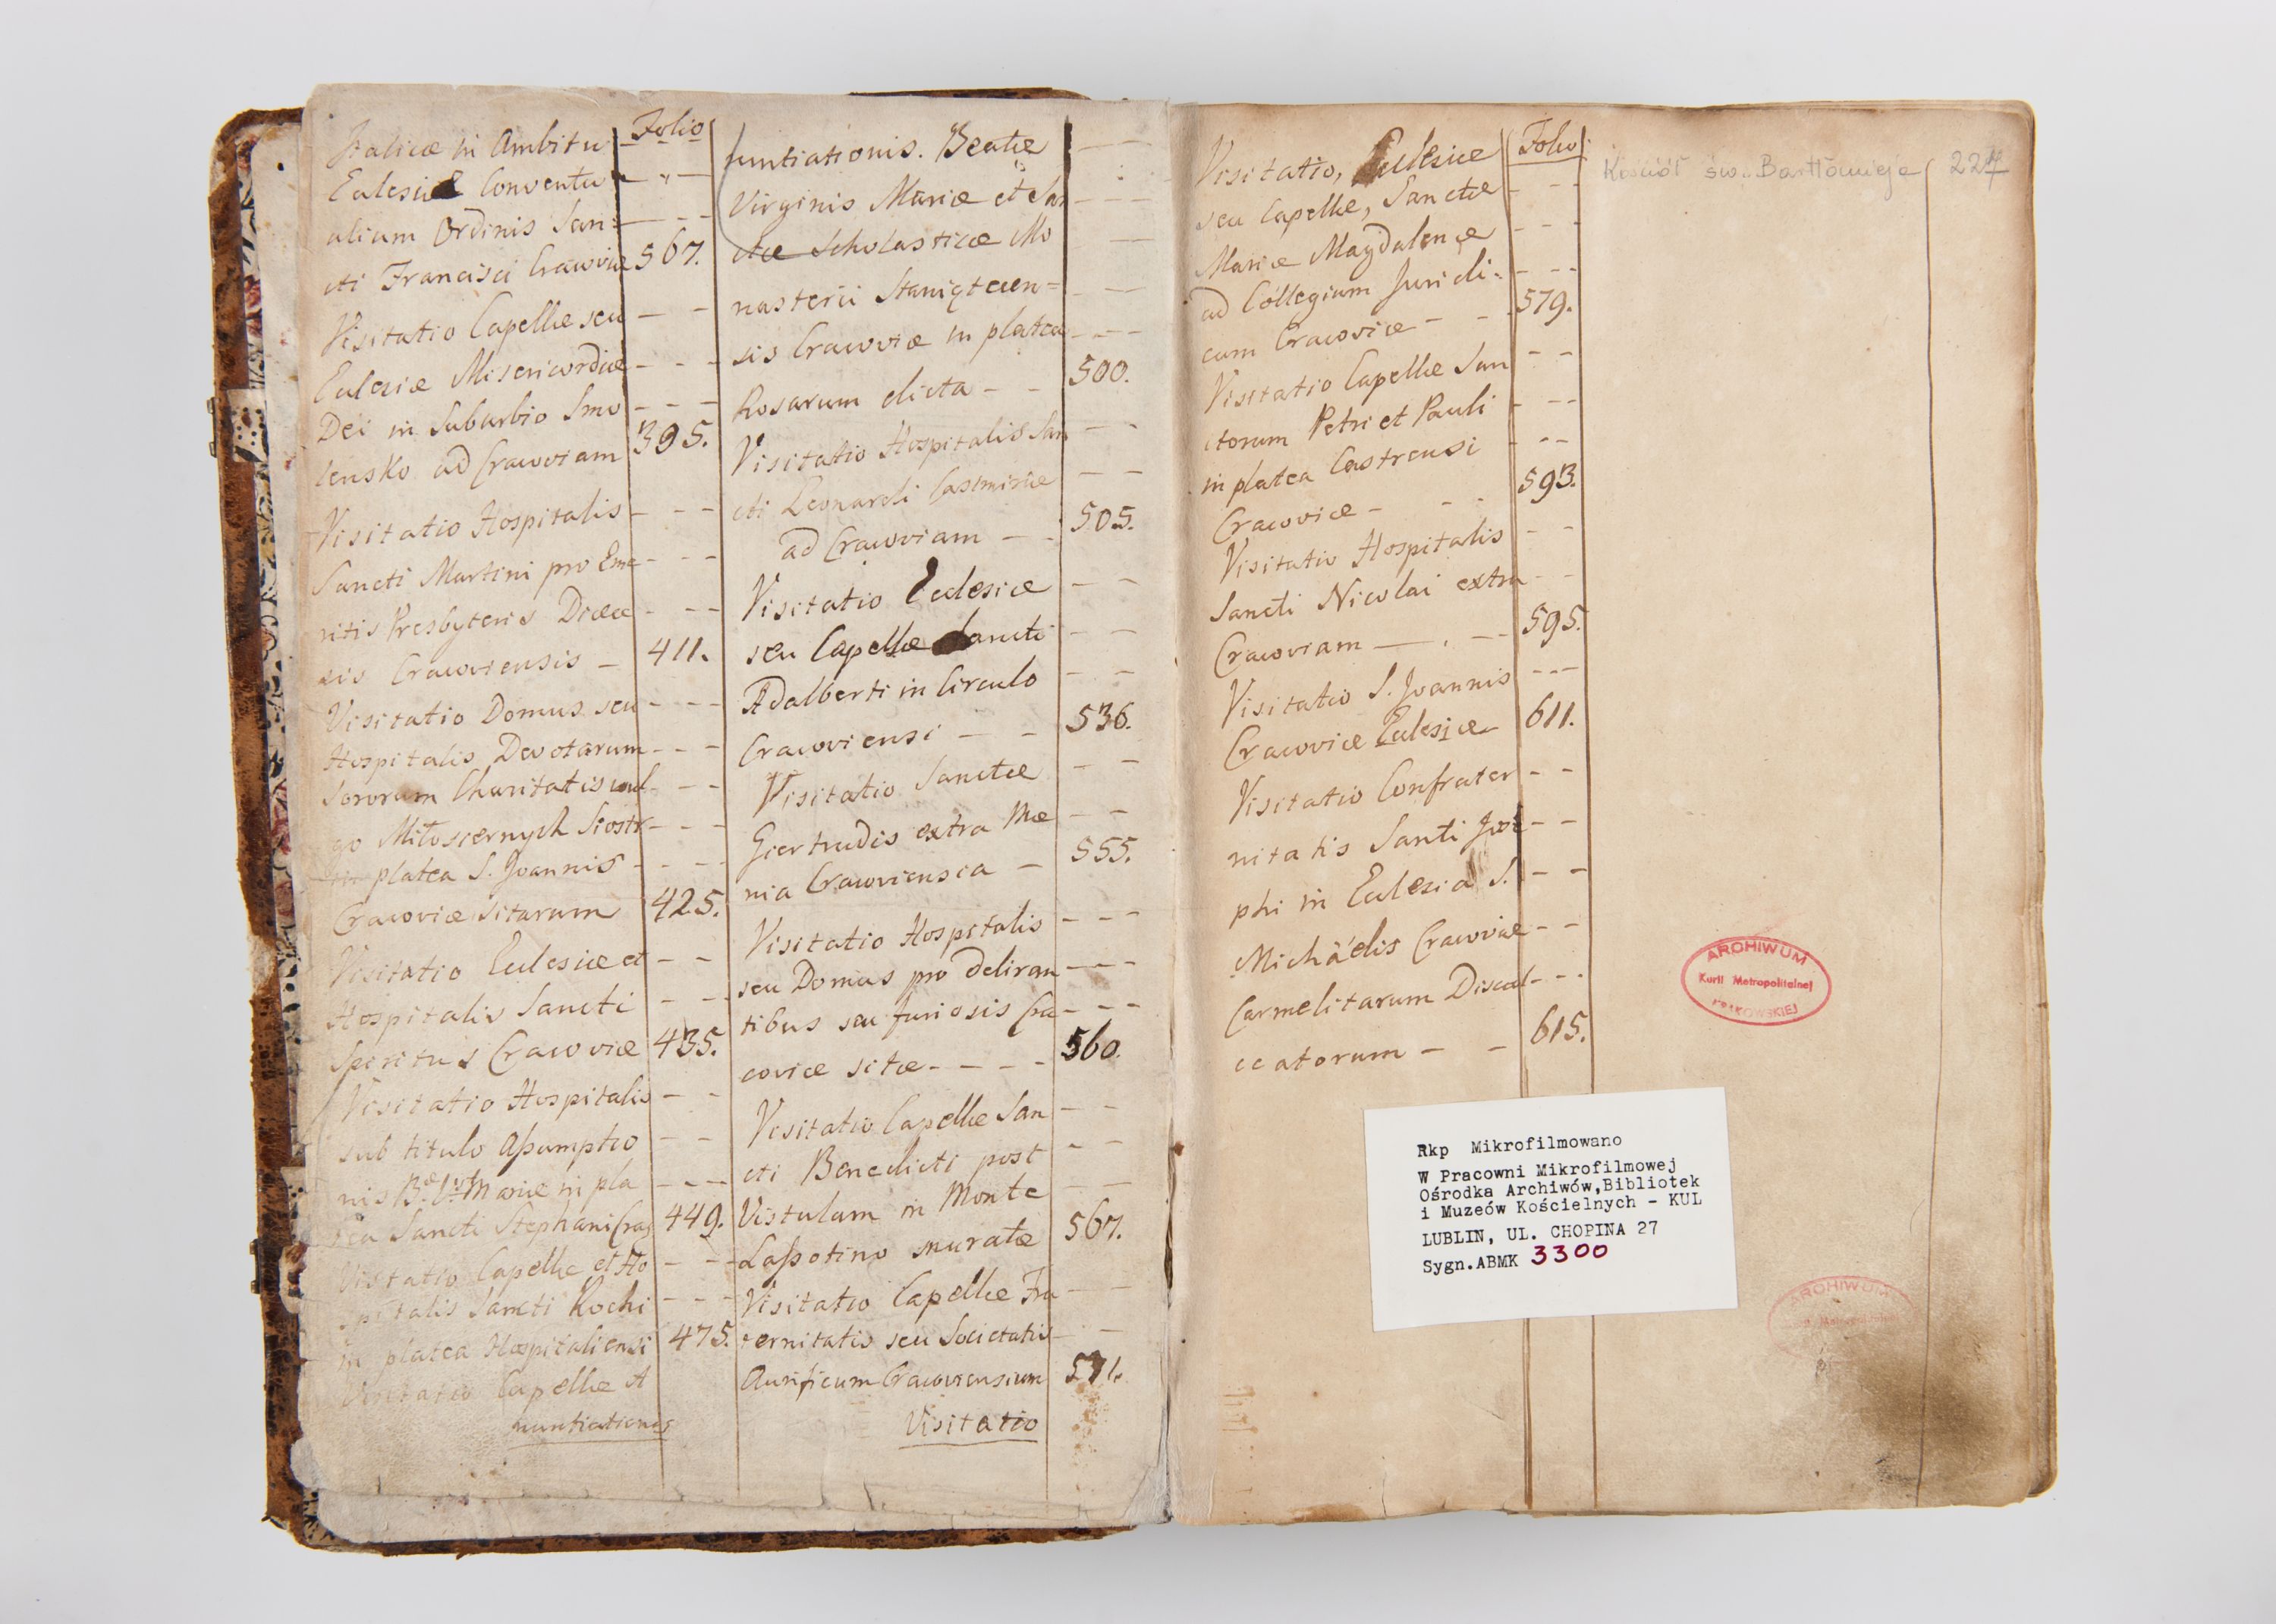 Folio
Italicæ in Ambitu
Eclesiæ Conventu - - -
alium Ordinis San= - - -
cti Francisci Cracoviæ 367.
Visitatio Capellæ seu - -
Eclesiæ Misericordiæ - - -
Dei in Suburbio Smo - - -
lensko ad Cracoviam 395.
Visitatio Hospitalis - - -
Sancti Martini pro Eme - - -
ritis Presbyteris Diæce - - -
sis Cracoviensis - 411.
Visitatio Domus seu - - -
Hospitalis Devotarum - - -
Sororum Charitatis vul - - -
go Miłosiernych Siostr - - -
in platea S. Joannis - - -
Cracoviæ sitarum 425.
Visitatio Eclesiæ et - -
Hospitalis Sancti - -
Spiritus Cracoviæ 435.
Visitatio Hospitalis - -
sub titulo Aßumptio - -
nis B. V. Mariæ in pla - - -
tea Sancti Stephani Crac 449.
Visitatio Capellæ et Ho - -
spitalis Sancti Rochi - - -
in platea Hospitaliensi 475.
Visitatio Capellæ A
nuntiationis
nuntiationis. Beatæ - -
Virginis Mariæ et San - - -
ctæ Scholasticæ Mo - -
nasterii Staniątecen= - -
sis Cracoviæ in platea - - -
Rosarum dicta - - 500.
Visitatio Hospitalis San - -
cti Leonardi Casimiriæ - -
ad Cracoviam - - 505.
Visitatio Eclesiæ - -
seu Capellæ Sancti - -
Adalberti in Circulo - -
Cracoviensi - - 536.
Visitatio Sanctæ - -
Giertrudis extra Mæ - -
nia Cracoviensia - 555.
Visitatio Hospitalis - - -
seu Domus pro deliran - - -
tibus seu furiosis Cra - - -
coviæ sitæ - - - - 560.
Visitatio Capellæ San - -
cti Benedicti post -
Vistulam in Monte - -
Laßotino muratæ 567.
Visitatio Capellæ Fra - -
ternitatis seu Societatis - -
Aurificum Cracoviensium 571.
Visitatio
Folio
Visitatio, Eclesiæ
seu Capellæ, Sanctæ - -
Mariæ Magdalenæ - - -
ad Collegium Juridi= - - -
cum Cracoviæ - - 579.
Visitatio Capellæ San - -
ctorum Petri et Pauli - - -
in platea Castrensi - - -
Cracoviæ - - 593.
Visitatio Hospitalis - -
Sancti Nicolai extra - -
Cracoviam - - - 595.
Visitatio S. Joannis - - -
Cracoviæ Eclesiæ 611.
Visitatio Confrater - -
nitatis Santi Jose - -
phi in Eclesia S. - -
Michäelis Cracoviæ - -
Carmelitarum Discal - - -
ceatorum - - 615.
Kościół św. Bartłomieja 227
ARCHIWUM
Kurii Metropolitalnej
KRAKOWSKIEJ
Rkp Mikrofilmowano
W Pracowni Mikrofilmowej
Ośrodka Archiwów,Bibliotek
i Muzeów Kościelnych - KUL
LUBLIN, UL. CHOPINA 27
Sygn.ABMK 3300
ARCHIWUM